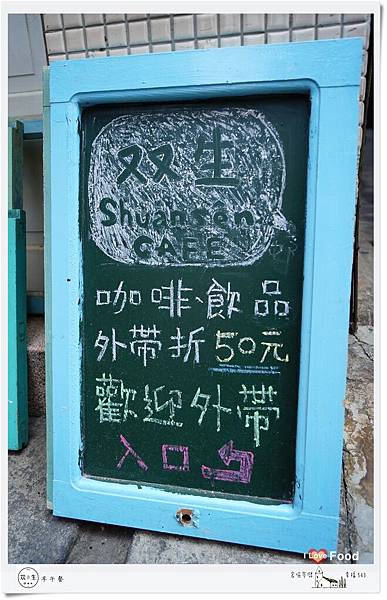 双生
Shuansên
CAFÉ
咖啡、飲品
外帶折50元
歡迎外帶
入口
I Love Food
双生 早午餐